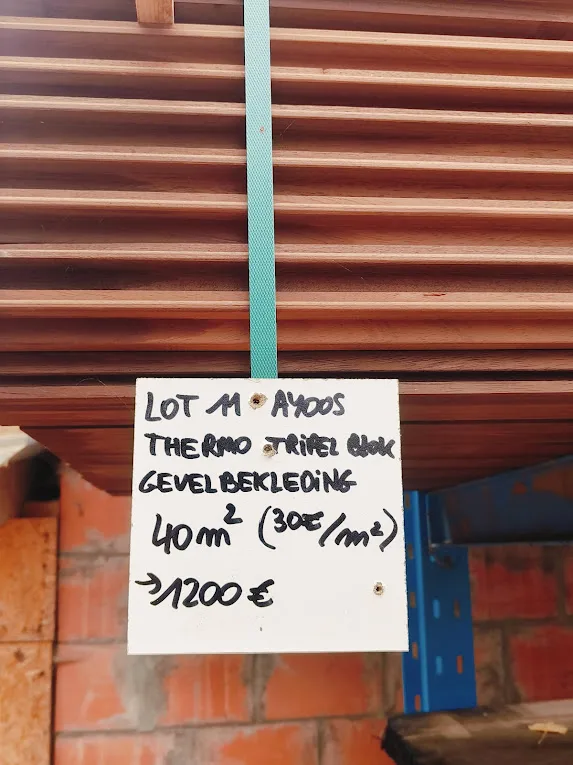 LOT 11 AYOOS
THERMO TRIPEL BLOK
GEVELBEKLEDING
40m² (30€/m²)
→1200€